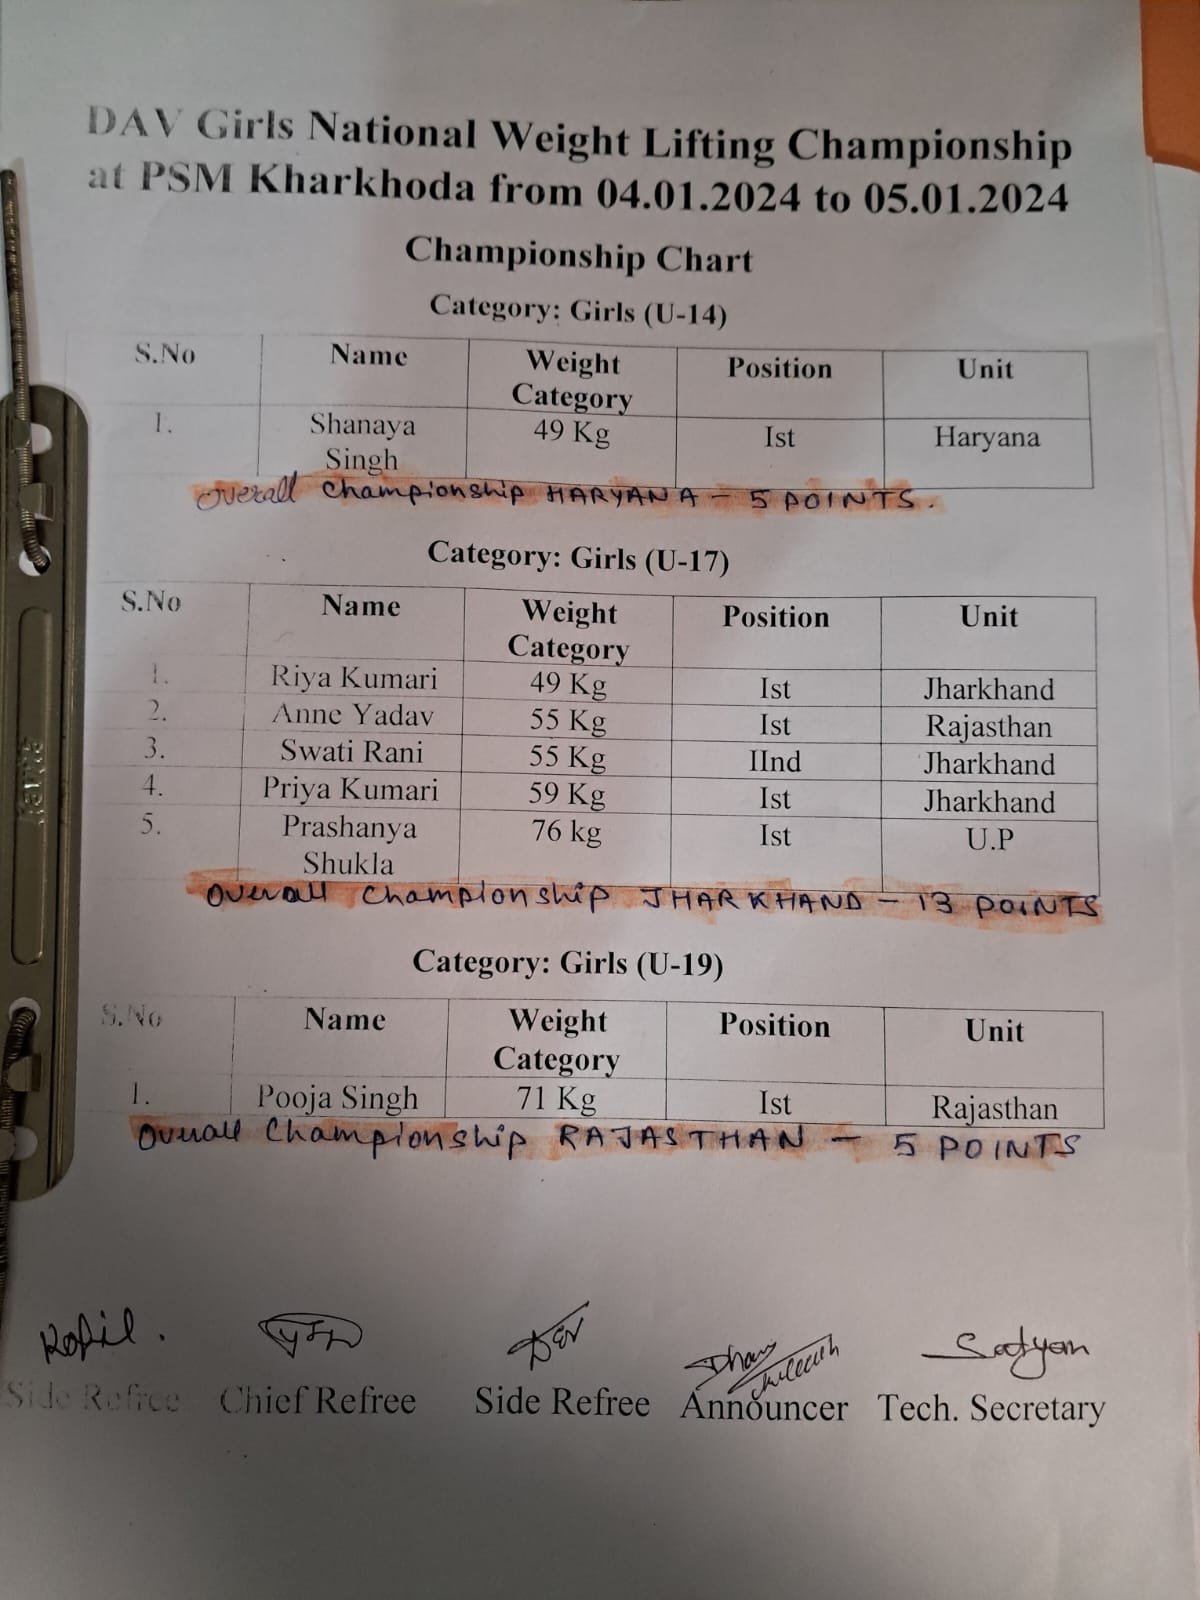 DAV Girls National Weight Lifting Championship
at PSM Kharkhoda from 04.01.2024 to 05.01.2024
Championship Chart
Category: Girls (U-14)
S.No Name Weight Category Position Unit
1. Shanaya Singh 49 Kg Ist Haryana
Overall Championship HARYANA - 5 POINTS.
Category: Girls (U-17)
S.No Name Weight Category Position Unit
1. Riya Kumari 49 Kg Ist Jharkhand
2. Anne Yadav 55 Kg Ist Rajasthan
3. Swati Rani 55 Kg IInd Jharkhand
4. Priya Kumari 59 Kg Ist Jharkhand
5. Prashanya Shukla 76 kg Ist U.P
Overall Championship JHARKHAND - 13 POINTS
Category: Girls (U-19)
S.No Name Weight Category Position Unit
1. Pooja Singh 71 Kg Ist Rajasthan
Overall Championship RAJASTHAN - 5 POINTS
Satyam
Side Refree Chief Refree Side Refree Announcer Tech. Secretary